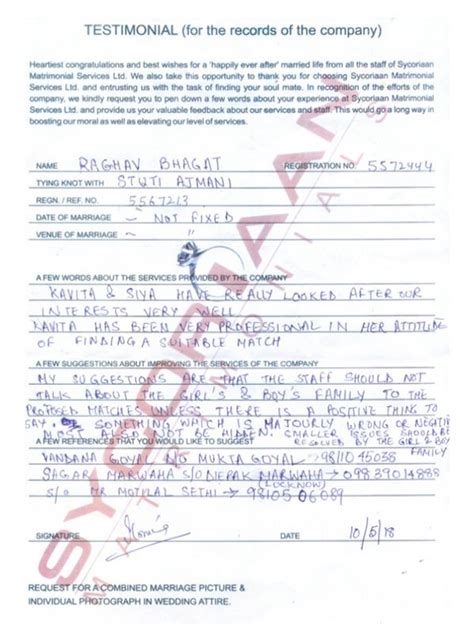 TESTIMONIAL (for the records of the company)
Heartiest congratulations and best wishes for a 'happily ever after' married life from all the staff of Sycoriaan
Matrimonial Services Ltd. We also take this opportunity to thank you for choosing Sycoriaan Matrimonial
Services Ltd. and entrusting us with the task of finding your soul mate. In recognition of the efforts of the
company, we kindly request you to pen down a few words about your experience at Sycoriaan Matrimonial
Services Ltd. and provide us your valuable feedback about our services and staff. This would go a long way in
boosting our moral as well as elevating our level of services.
NAME RAGHAV BHAGAT REGISTRATION NO: 5572444
TYING KNOT WITH STUTI AJMANI
REGN. / REF. NO. 5567213
DATE OF MARRIAGE ~ NOT FIXED
VENUE OF MARRIAGE ~ "
A FEW WORDS ABOUT THE SERVICES PROVIDED BY THE COMPANY
KAVITA & SIYA HAVE REALLY LOOKED AFTER OUR
INTERESTS VERY WELL
KAVITA HAS BEEN VERY PROFESSIONAL IN HER ATTITUDE
OF FINDING A SUITABLE MATCH
A FEW SUGGESTIONS ABOUT IMPROVING THE SERVICES OF THE COMPANY
MY SUGGESTIONS ARE THAT THE STAFF SHOULD NOT
TALK ABOUT THE GIRL'S & BOY'S FAMILY TO THE
PROPOSED MATCHES UNLESS THERE IS A POSITIVE THING TO
SAY. SOMETHING WHICH IS MAJOURLY WRONG OR NEGITIV
MUST ALSO NOT BE HIDDEN. SMALLER ISSUES SHOULD BE
RESOLVED BY THE GIRL & BOY
FAMILY
A FEW REFERENCES THAT YOU WOULD LIKE TO SUGGEST
VANDANA GOYAL MUKTA GOYAL → 98110 45038
SAGAR MARWAHA S/O NEPAK MARWAHA → 09839014888
(LUCKNOW)
S/O MR MOTILAL SETHI → 98105 06089
SIGNATURE DATE 10/5/18
REQUEST FOR A COMBINED MARRIAGE PICTURE &
INDIVIDUAL PHOTOGRAPH IN WEDDING ATTIRE.
SYCORIAAN
MATRIMONIALS